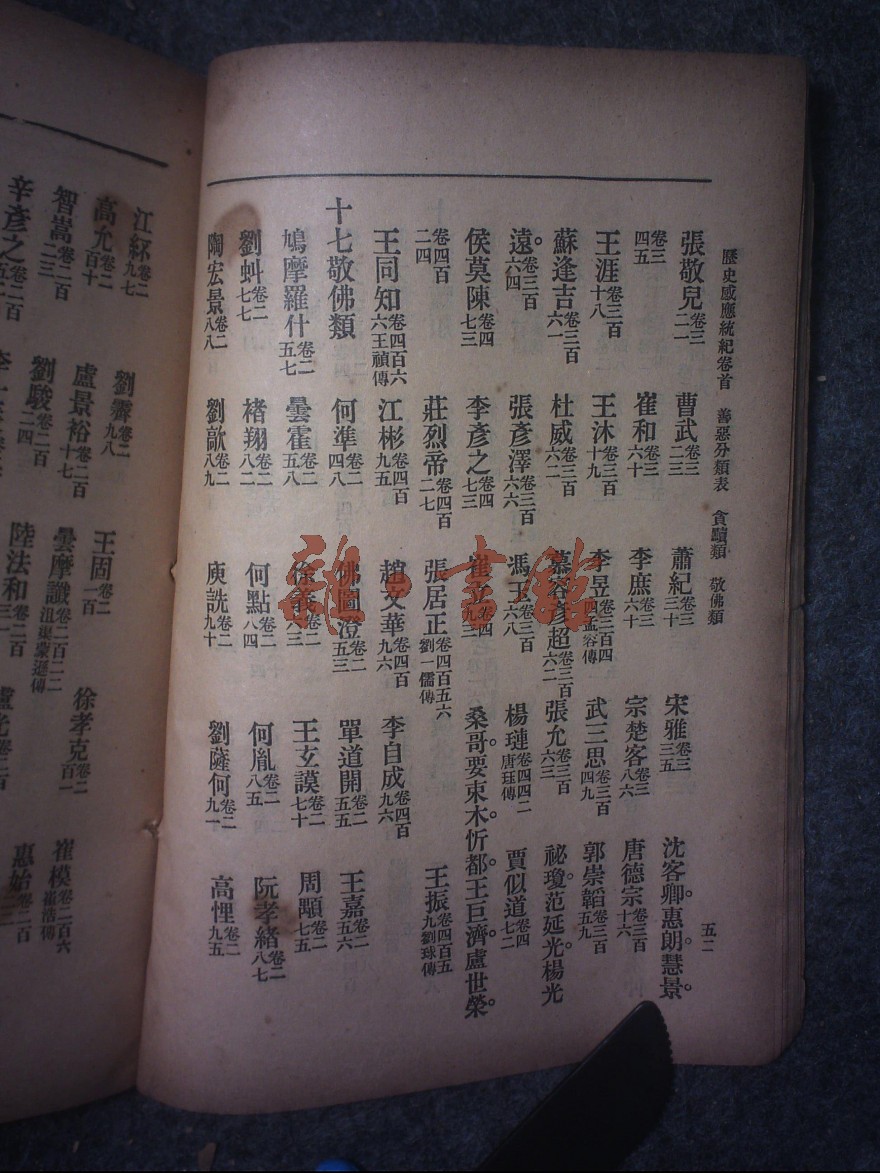 歷史感應統紀卷首 善惡分類表 貪黷類 敬佛類 五二
張敬兒卷三二一 曹武卷三二三 蕭紀卷三三十 宋雅卷三三五 沈客卿。惠朗。慧景。
卷三四五 崔和卷三六十 李庶卷三六十 宗楚客卷三八六 唐德宗卷三百十六
王涯卷三百十八 王沐卷三百十九 李昱卷三百四四孟容傳 武三思卷三百四九 郭崇韜卷三百五九
蘇逢吉卷三百六一 杜威卷三百六二 慕容彥超卷三百六二 張允卷三百六三 祕瓊。范延光。楊光
遠。卷三百六四 張彥澤卷三百六六 馮玉六八 楊璉卷四四二唐珏傳 賈似道卷四七二
侯莫陳卷四七三 李彥之卷四七三 崔立卷四九三 桑哥。要束木。忻都。王巨濟。盧世榮。
卷四百二四 莊烈帝卷四百二七 張居正卷四百五六劉一儒傳 王振卷四百五九劉球傳
王同知卷四百六六王禎傳 江彬卷四百九五 趙文華卷四百九六 李自成卷四百九六
十七敬佛類 何準卷二四八 佛圖澄卷二五三 單道開卷二五五 王嘉卷二五六
鳩摩羅什卷二五七 曇霍卷二五八 徐義卷二 王玄謨卷二七十 周顒卷二七五
劉虯卷二七七 褚翔卷二八二 何點卷二八四 何胤卷二八五 阮孝緒卷二八七
陶宏景卷二八八 劉歊卷二八九 庾詵卷二九十 劉薩何卷二九一 高悝卷二九五
江紑卷二九七 劉霽卷二九八 王固卷二一百 徐孝克卷二百一 崔模卷二百六崔浩傳
高允卷二百十 盧景裕卷二百十七 曇摩讖卷二百二二沮渠蒙遜傳 盧光卷二百 惠始卷二百
智嵩卷二百二三 劉駿卷二百二四 陸法和卷二百三一
辛彥之卷二百